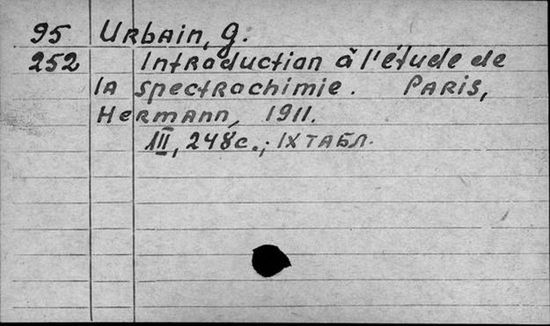 95 Urbain, G.
252 Introduction à l'étude de
la spectrochimie. Paris,
Hermann, 1911.
III, 248с.; IX табл.